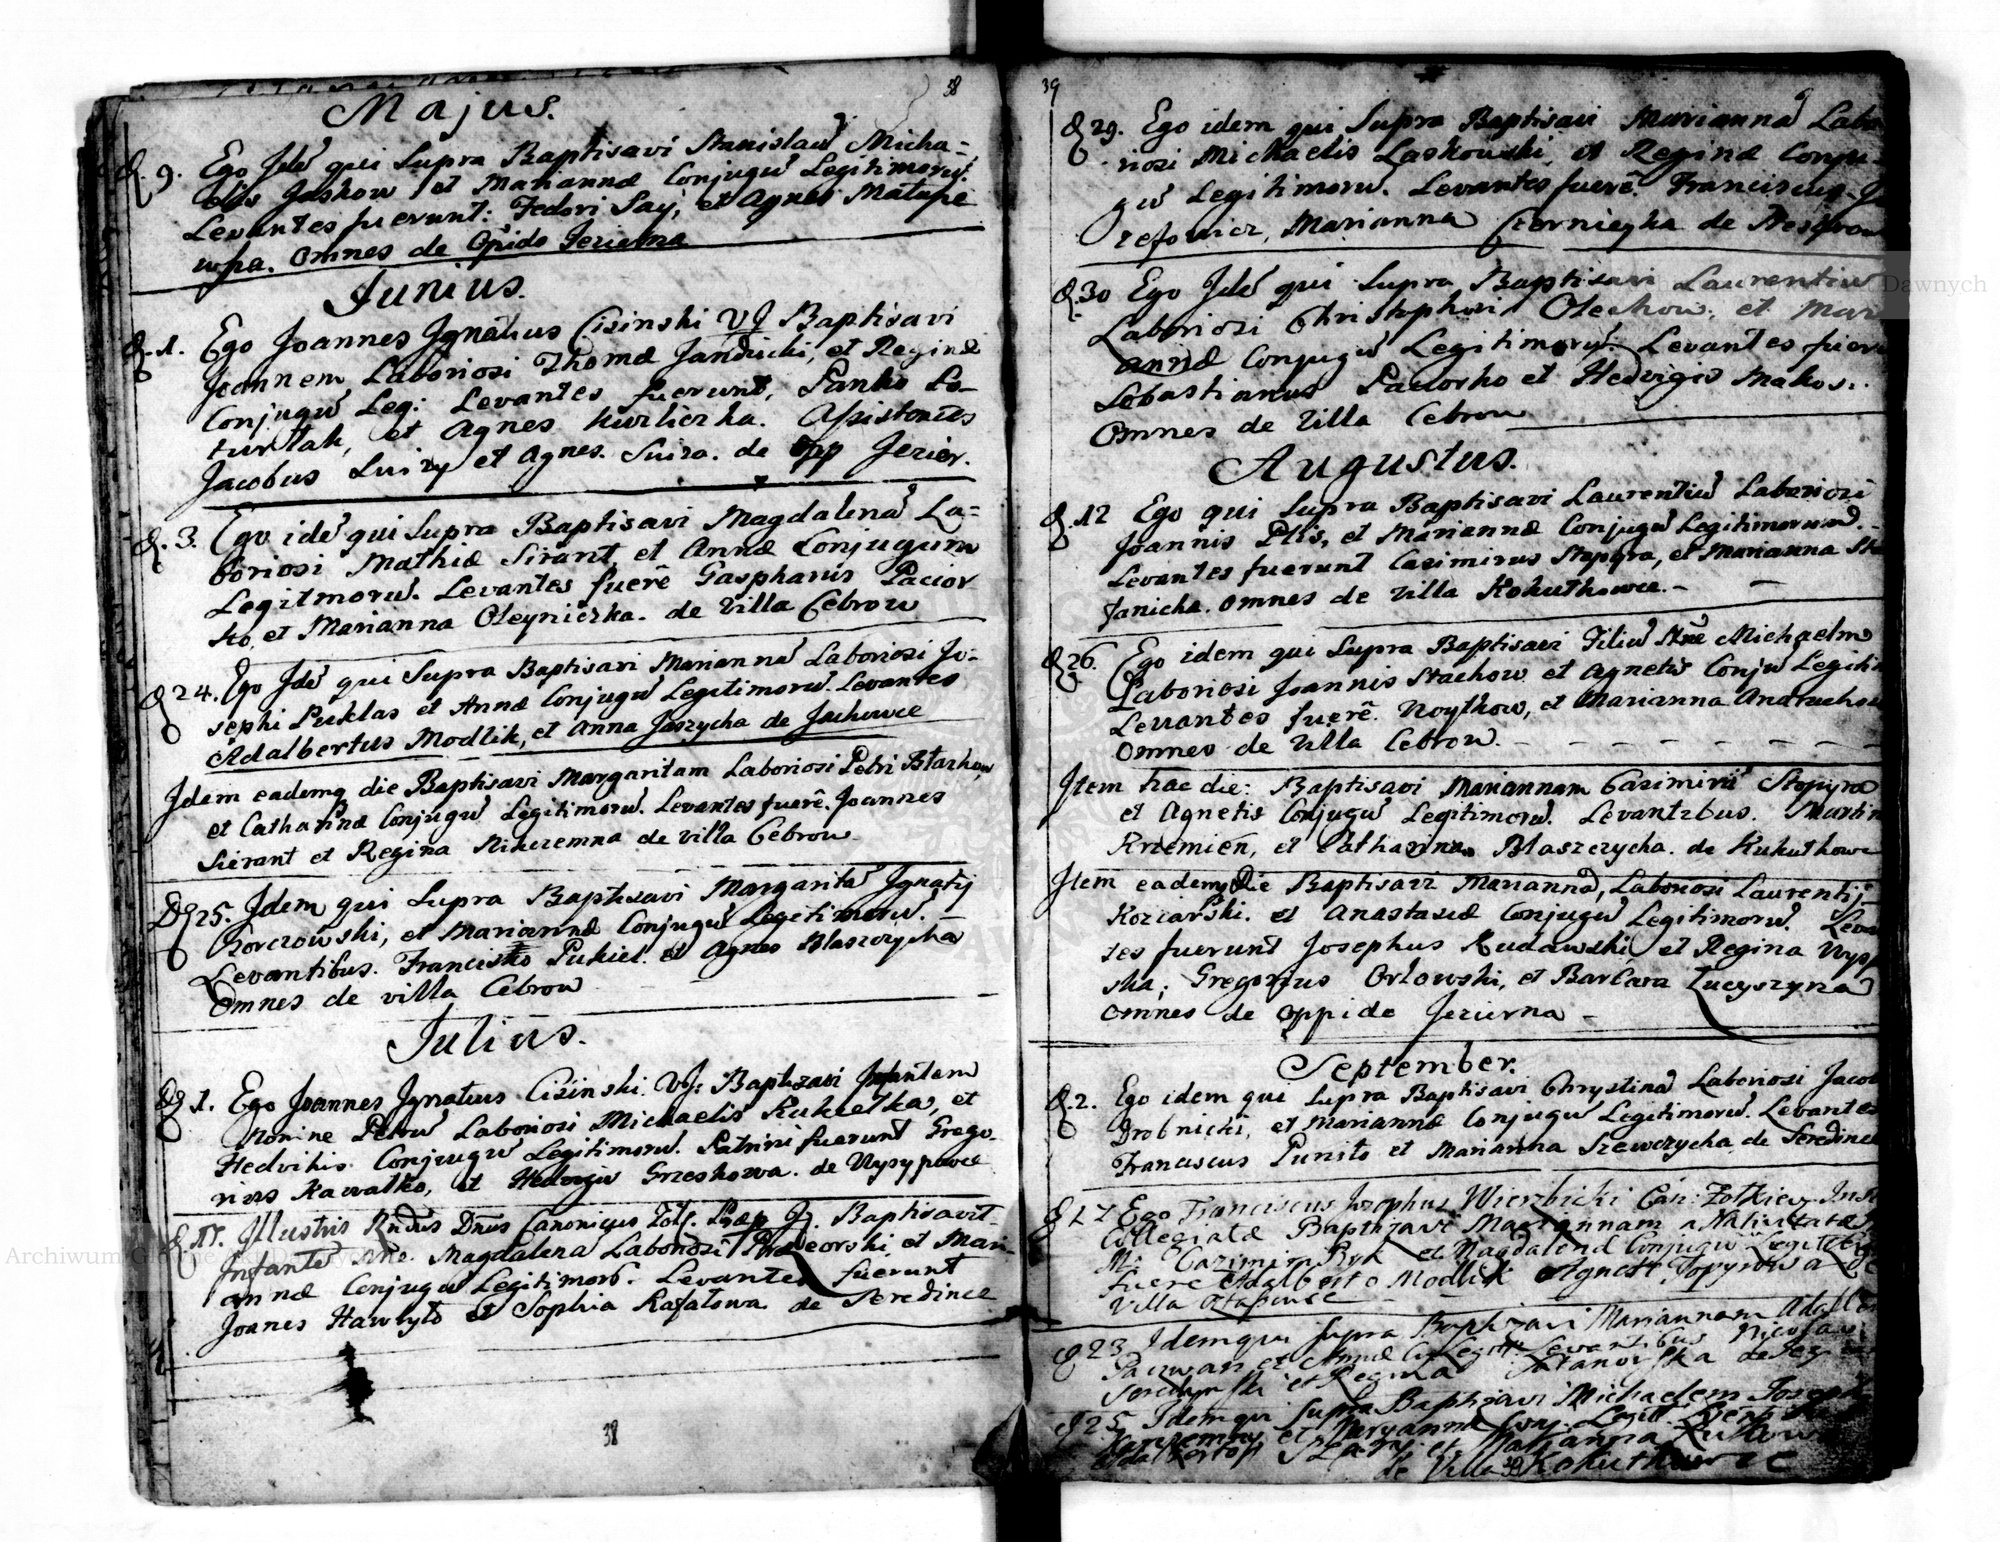 38
Majus.
D. 9. Ego Idē qui Supra Baptisavi Stanislaū Micha=
elis Jaskow et Mariannæ Conjugū Legitimorū.
Levantes fuerunt: Fedori Say, et Agnes Matape
wna. Omnes de Opido Jezierna
Junius.
D. 1. Ego Joannes Ignatius Cisinski VJ Baptisavi
Joannem Laboriosi Thomæ Janducki, et Reginæ
Conjugū Leg: Levantes fuerunt, Panko Pa-
turŁak, et Agnes Kurliczka. Assistentes
Jacobus Suizy et Agnes Suiza. de opp Jezier.
D. 3. Ego idē qui Supra Baptisavi Magdalenā La=
boriosi Mathiæ Sirant, et Annæ Conjugum
Legitmorū. Levantes fuerē Gaspharus Pacior
ko, et Marianna Oleyniczka. de Villa Cebrow
D 24. Ego Idē qui Supra Baptisavi Mariannā Laboriosi Jo-
sephi Puklas et Annæ Conjugū Legitimorū. Levantes
Adalbertus Modlik, et Anna Jaszycha de Jachowce
Idem eademq die Baptisavi Margaritam Laboriosi Petri Btazkow
et Catharinæ Conjugū Legitimorū. Levantes fuerē. Joannes
Sierant et Regina Nikizemna de villa Cebrow
D 25. Idem qui Supra Baptisavi Margaritā Ignatij
Borczowski, et Mariannæ Conjugū Legitimorū. -
Levantibus. Francisko Pukiel. et Agnes Blaszczycha
Omnes de villa Cebrow
Julius.
D 1. Ego Joannes Ignatius Cisinski. VJ: Baptizavi Infantem
Nomine Petrū Laboriosi Michaelis Kukietka, et
Hedvikis. Conjugū Legitimorū. Patrini fuerunt Grego-
rius Kawatko, et Hedvigis Grzeskowa. de Wysypowce
D 17. Illustris Rndus Dnus Canonicus Zolk. Præp Jz. Baptisavit-
Infantē Magdalena Laboriosi et Mari-
annæ Conjugū Legitimorū. Levantes fuerunt
Joanes Hawryto et Sophia Rafatowa de Seredince
38
39
D 29. Ego idem qui Supra Baptisavi Mariannā Labo
riosi Michaelis Laskowski, et Reginæ Conju-
gū Legitimorū. Levantes fuerē. Franciscus Jo
zefowicz, Marianna Czerniezka de
D. 30 Ego Idē qui Supra Baptisavi Laurentiū
Laboriosi Christophori Olechow, et Mari
annæ Conjugū Legitimorū. Levantes fuere
Sebastianus Paciorko et Hedvigis Makos..
Omnes de Villa Cebrow
Augustus.
D. 12 Ego qui Supra Baptisavi Laurentiū Laboriosi
Joannis Ptis, et Mariannæ Conjugū Legitimorum. -
Levantes fuerunt Casimirus Stopyra, et Marianna Sta
Janicha. Omnes de Villa Kokutkowce. -
D 26. Ego idem qui Supra Baptisavi Filiū Nne Michaelm
Laboriosi Joannis Stachow et Agnetis Conjū Legiti
Levantes fuerē. Woytkow, et Marianna Andruchow
Omnes de Villa Cebrow. - - - - - - -
Item hac die: Baptisavi Mariannam Casimiri Stopyra
et Agnetis Conjugū Legitimorū. Levantibus. Martin
Krzemien, et Catharina Blaszczycha. de Kukutkowc
Item eademq Die Baptisavi Mariannā, Laboriosi Laurentij-
Koziarski. et Anastasiæ Conjugū Legitimorū. Levan
tes fuerunt Josephus Rudawski et Regina Wysp
ska; Gregorius Orlowski, et Barbara Lucyszyna
Omnes de Oppido Jezierna -
September.
D. 2. Ego idem qui Supra Baptisavi Chrystinā Laboriosi Jacob
Drobnicki, et Mariannæ Conjugū Legitimorū. Levantes
Franciscus Punito et Marianna Szewczycha de Seredince
D 17 Ego Franciscus Josephus Wierzbicki Can: Zolkiev. Ins
Collegiatæ Baptizavi Mariannam a Nativitate
Casimira Ryk et Magdalenæ Conjugū Legit
fuere Adalberto Modlik Agnes Topyrowa de
Villa
D 23 Idem qui Supra Baptizavi Mariannam Adalber
et Annæ Legit Levantibus Nicolaus
et Regina de
D 25 Idem qui Supra Baptizavi Michaelem Joseph
et Maryannæ Conj. Legit.
et Marianna
de Villa Kokutkowce